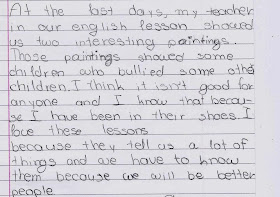 At the last days, my teacher
in our english lesson showed
us two interesting paintings.
Those paintings showed some
children who bullied some othe
children. I think it isn't good for
anyone and I know that becau-
se I have been in their shoes. I
love these lessons
because they tell us a lot of
things and we have to know
them because we will be better
people